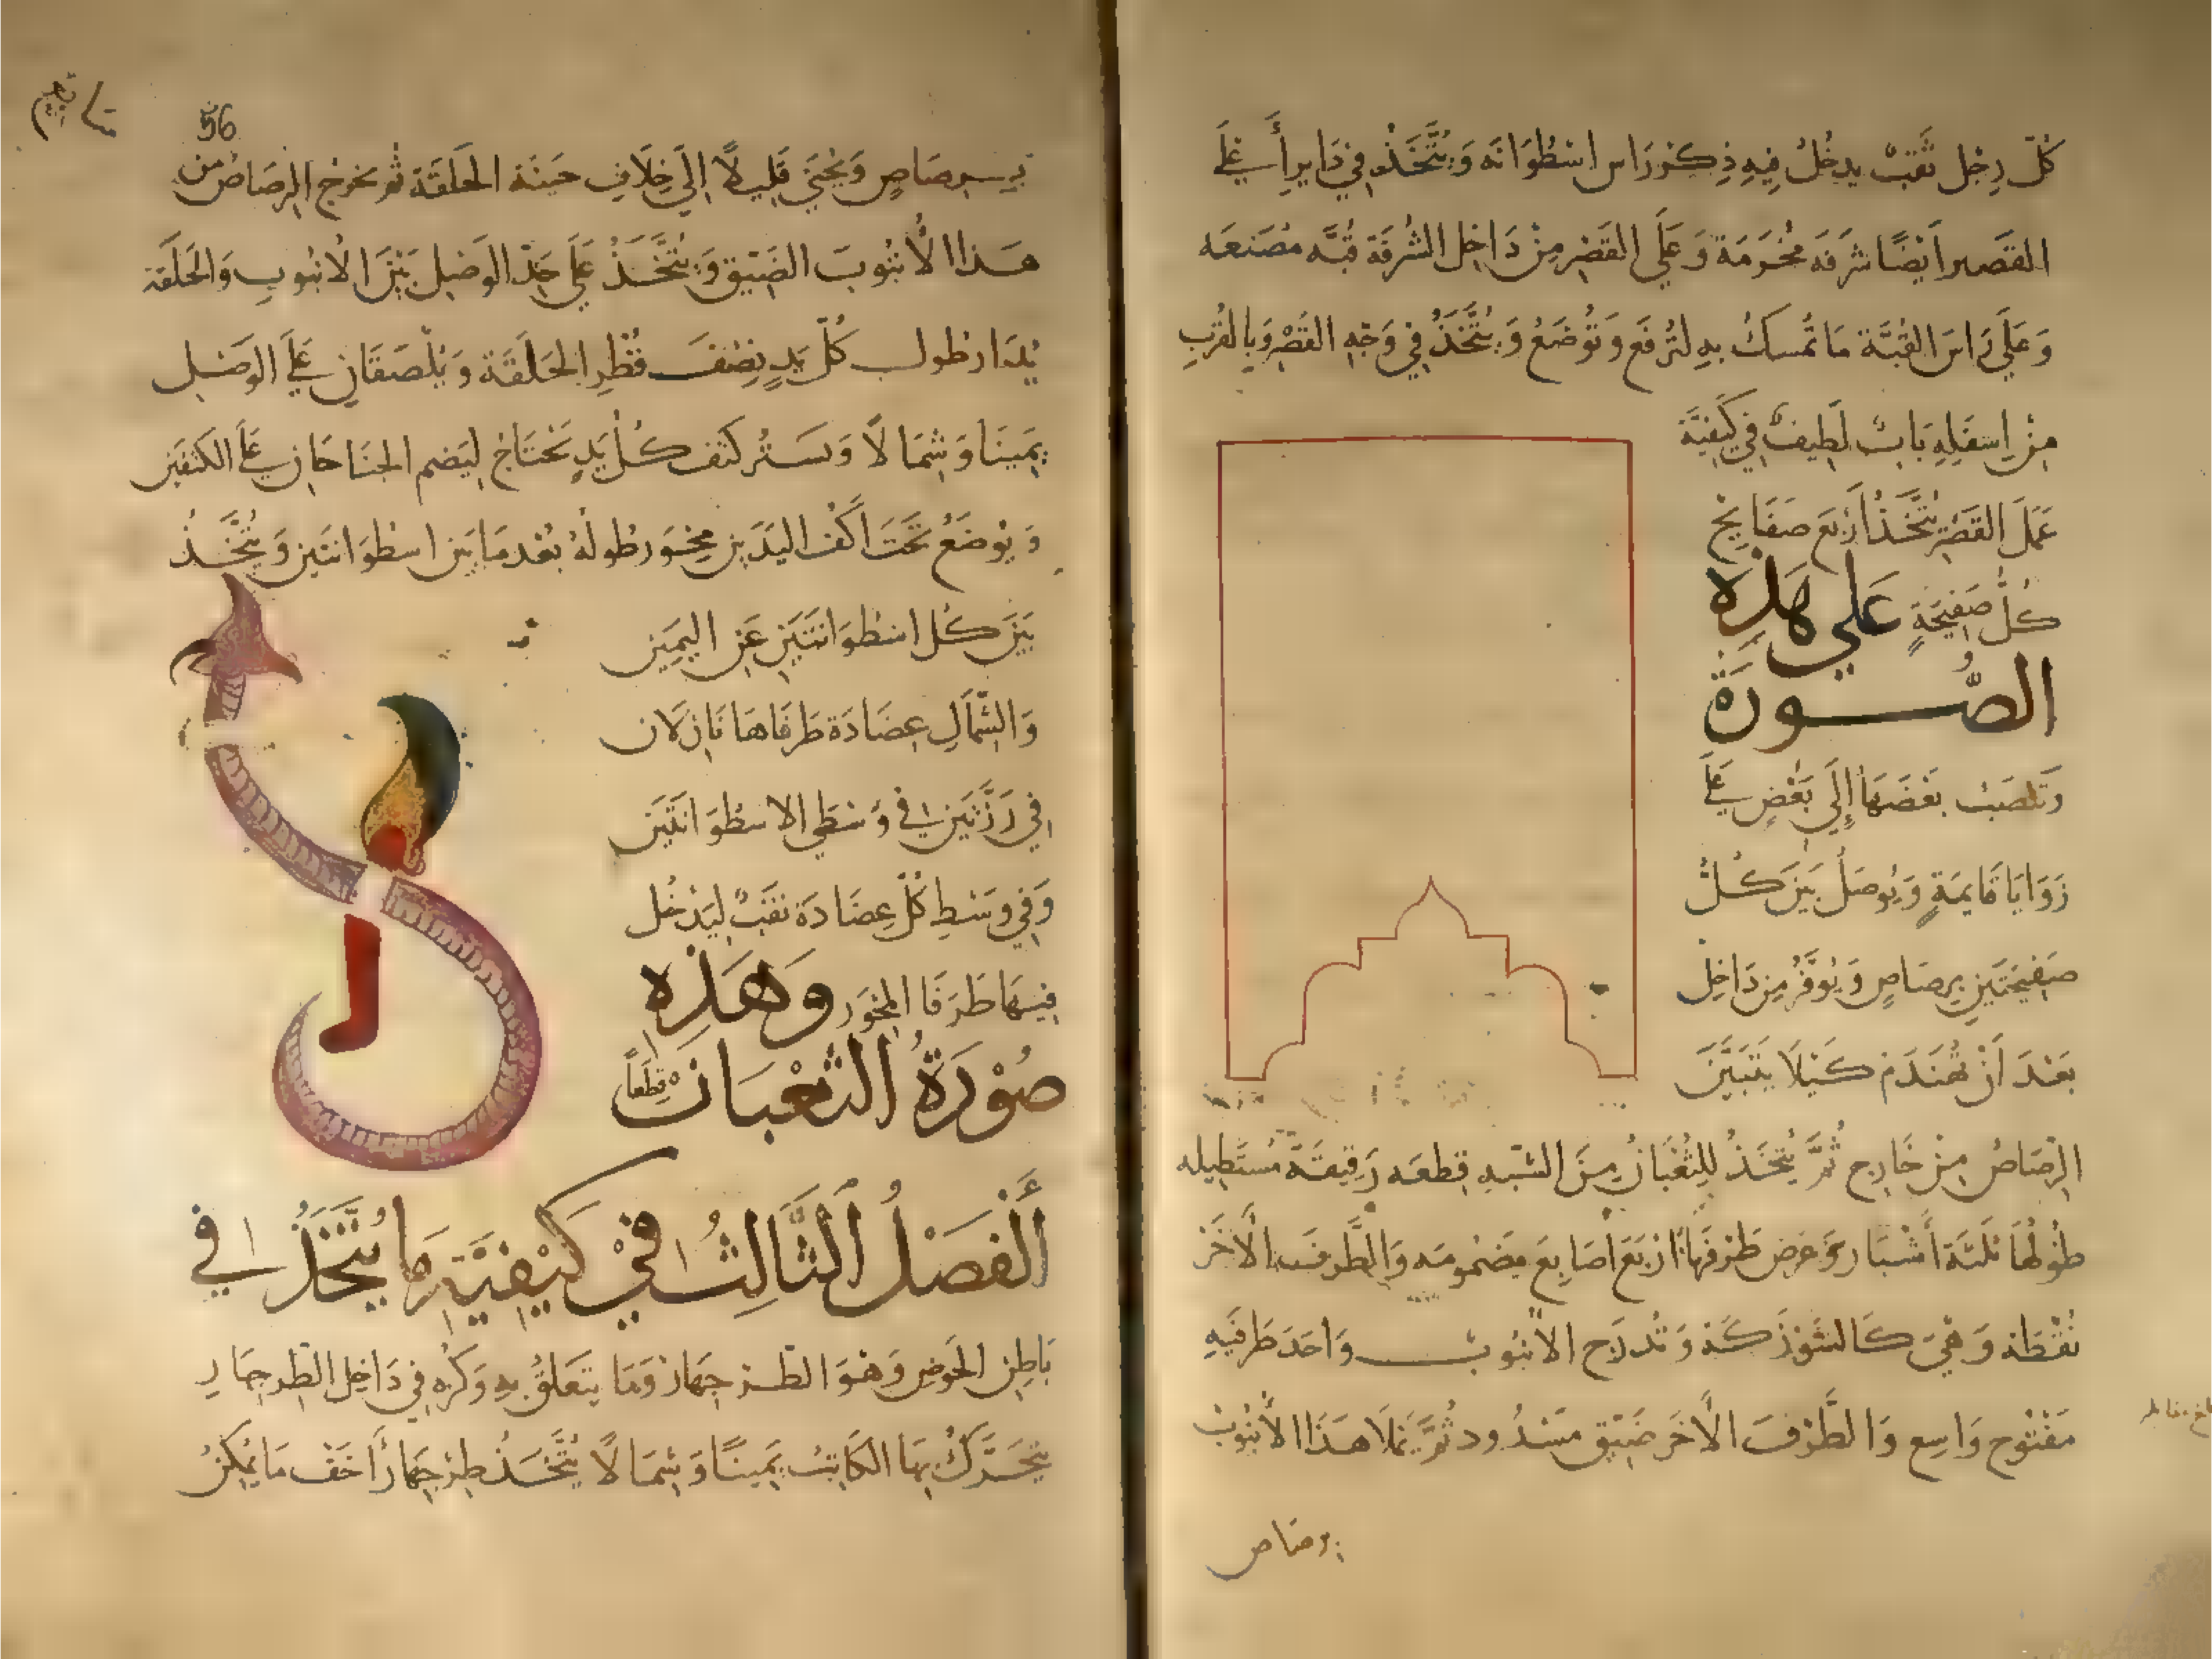 كُلّ رِجْل ثَقبٌ يدخُلُ فِيهِ ذِكرُ رَاس اسْطُوَانَه وَيُتَّخَذُ فِي دَايِر أَعْلَى
القَصْر أَيْضًا شرَفَه مُخَرَمَة وَعَلَى القَصْر مِنْ دَاخِل الشُرفَة قُبَّه مُصَنعَه
وَعَلَى رَاس القُبَّة مَا تُمسَكُ بِهِ لتُرفَع وَتُوضَعُ وَيُتَّخَذُ فِي وَجْهِ القَصْر وَبِالقُربِ
مِنْ اسفَلِهِ بَابٌ لَطِيفٌ فِي كَيفِيَّة
عَمَل القَصْر يُتَّخَذُ أَربَع صَفَايِح
كُلُّ صَفِيحَةٍ عَلي هَذِهِ
الصُّورَة
وَتُنصَبُ بَعْضَهَا إِلَى بَعْضٍ عَلَى
زَوَايَا قَايمَةٍ وَيُوصَلُ بَيْنَ كُلِّ
صَفِيحَتَينِ بِرصَاصٍ وَيُوَفَّرُ مِن دَاخِل
بَعْدَ أَنْ تُهَندَم كَيْلَا يَتَبَيَّنَ
الرّصَاصُ مِنْ خَارِج ثُمَّ يُتَّخَذُ لِلثُعْبَانُ مِنَ الشّبَهِ قِطعَه رَقِيقَة مُسْتَطِيله
طُولُهَا ثَلثَة أَشْبَار وَعَرض طَرْفَهَا أَرْبَع أَصَابِعَ مَضمُومَه وَالطَّرفُ الأَخَر
نُقْطَة وَهْيَ كَالشَوْذَكَة وَتُدرَج الأُنبُوب وَاحَد طَرفَيهِ
مَفْتُوح وَاسِع وَالطَّرْفَ الأَخَر ضَيّق مَسْدُود ثُمَّ يُملَا هَذَا الأُنبُوبُ
برصَاص
56
بِرصَاصٍ وَيُحْنَى قَلِيلًا إِلَى خِلَافِ حَنيَة الحَلقَة ثُم يخرج الرصَاصُ من
هَذا الأُنبُوبَ الضَيّق وَيُتَّخَذُ عَلَى حَدّ الوَصْل بَيْنَ الأُنبُوبِ وَالحَلقَة
يَدَان طُول كُلّ يَدٍ نِصْفُ قُطْرِ الحَلقَة وَيُلْصَقَانِ عَلَى الوَصْل
يَمِينًا وَشِمَالًا وَيَسْتُر كتف كُل يَدٍ جَنَاحُ ليَضم الجنَاحَان عَلَى الكتفَين
وَيُوضَعُ تَحْتَ أَكُفّ اليَدَين مِحْوَر طُولُهُ بُعْد مَا بَين اسطُوَانتَين وَيُتَّخَذُ
بَيْنَ كُل اسْطُوَانتَيْن عَن اليَمِين
وَالشّمَالِ عِضَادَة طَرفَاهَا نَازلَان
فِي رَزَّتَين فِي وَسْطَي الاسْطُوَانَتَيْن
وَفِي وَسْطِ كُلّ عِضَادَة ثقبٌ لِيَدْخُل
فِيهَا طَرَفَا المِحْوَر وَهَذِهِ
صُوْرَةُ الثعْبَان قِطَعاً
أَلفَصْلُ الثَّالِثُ فِيْ كَيْفِيَّةِ مَا يُتَّخَذُ فِي
بَاطِن الحَوض وَهْوَ الطرجهَار وَمَا يتَعَلقُ بِهِ وَكُرَه فِي دَاخِل الطرجهَار
يتَحَرَّكُ بِهَا الكَاتبُ يَمِينًا وَشِمَالًا يُتَّخَذُ طِرجهَار أَخَفّ مَا يُمْكِنُ